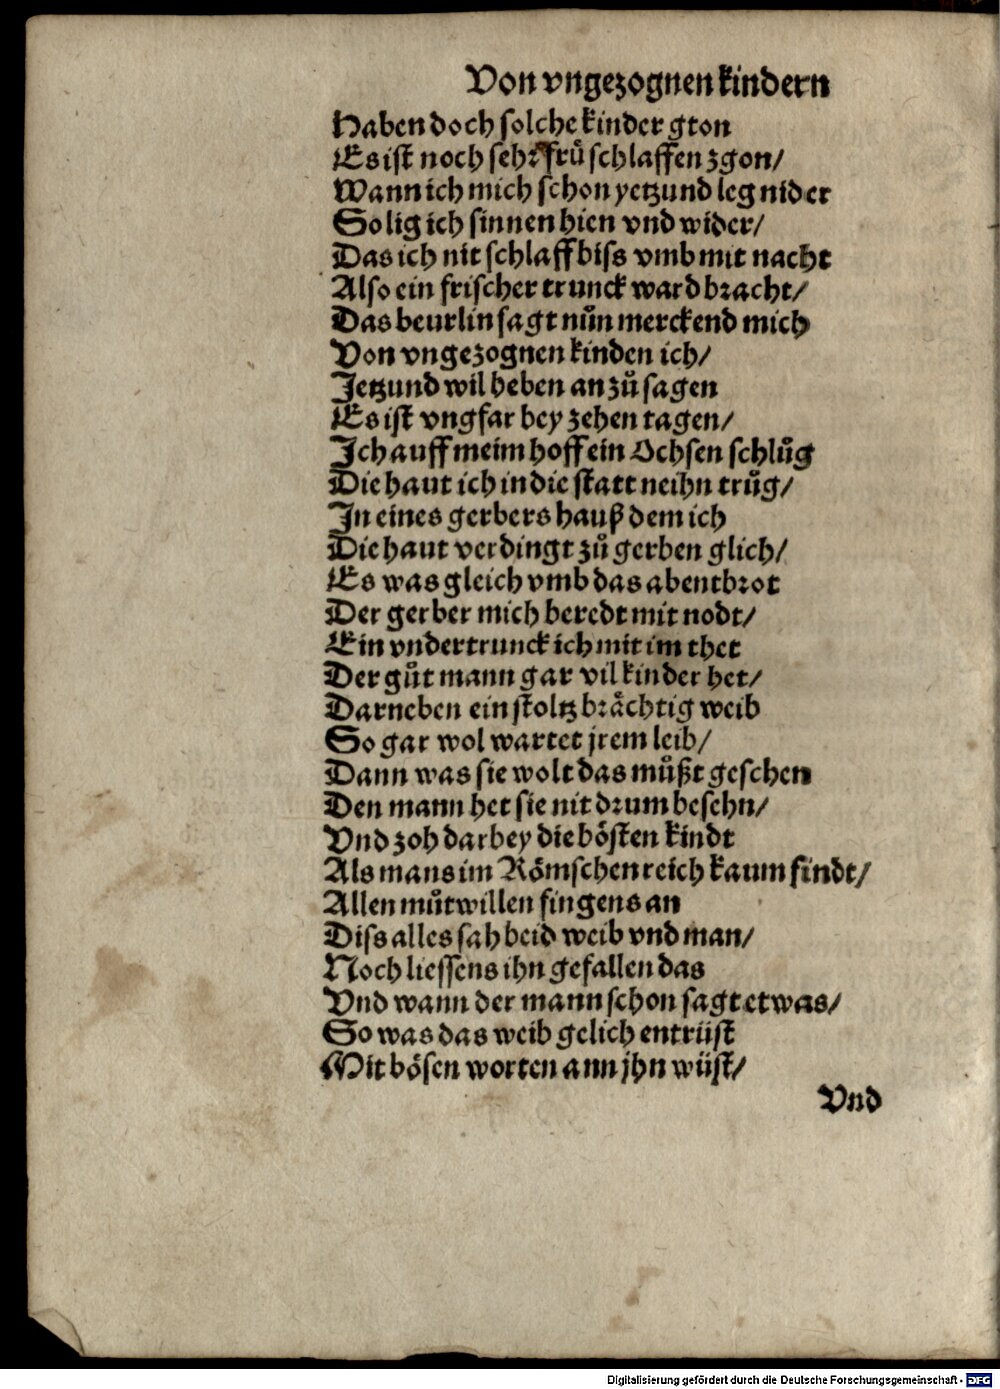 Von vngezognen kindern
Haben doch solche kinder gton
Es ist noch sehr frü schlaffen zgon/
Wann ich mich schon yetzund leg nider
So lig ich sinnen hien vnd wider/
Das ich nit schlaff biss vmb mit nacht
Also ein frischer trunck ward bracht/
Das beurlin sagt nůn merckend mich
Von vngezognen kinden ich/
Jetzund wil heben an zů sagen
Es ist vngfar bey zehen tagen/
Ich auff meim hoff ein Ochsen schlůg
Die haut ich in die statt neihn trůg/
In eines gerbers hauß dem ich
Die haut verdingt zů gerben glich/
Es was gleich vmb das abentbrot
Der gerber mich beredt mit nodt/
Ein vndertrunck ich mit im thet
Der gůt mann gar vil kinder het/
Darneben ein stoltz brächtig weib
So gar wol wartet jrem leib/
Dann was sie wolt das můßt geschen
Den mann het sie nit drum besehn/
Vnd zoh darbey die bösten kindt
Als mans im Römschen reich kaum findt/
Allen můtwillen fingens an
Diss alles sah beid weib vnd man/
Noch liessens ihn gefallen das
Vnd wann der mann schon sagt etwas/
So was das weib gelich entrüst
Mit bösen worten ann jhn wüst/
Vnd
Digitalisierung gefördert durch die Deutsche Forschungsgemeinschaft - DFG